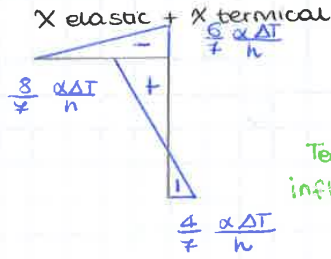 X elastic + X termical
− 6/7 αΔT/h
8/7 αΔT/h
+
Te
infl
4/7 αΔT/h